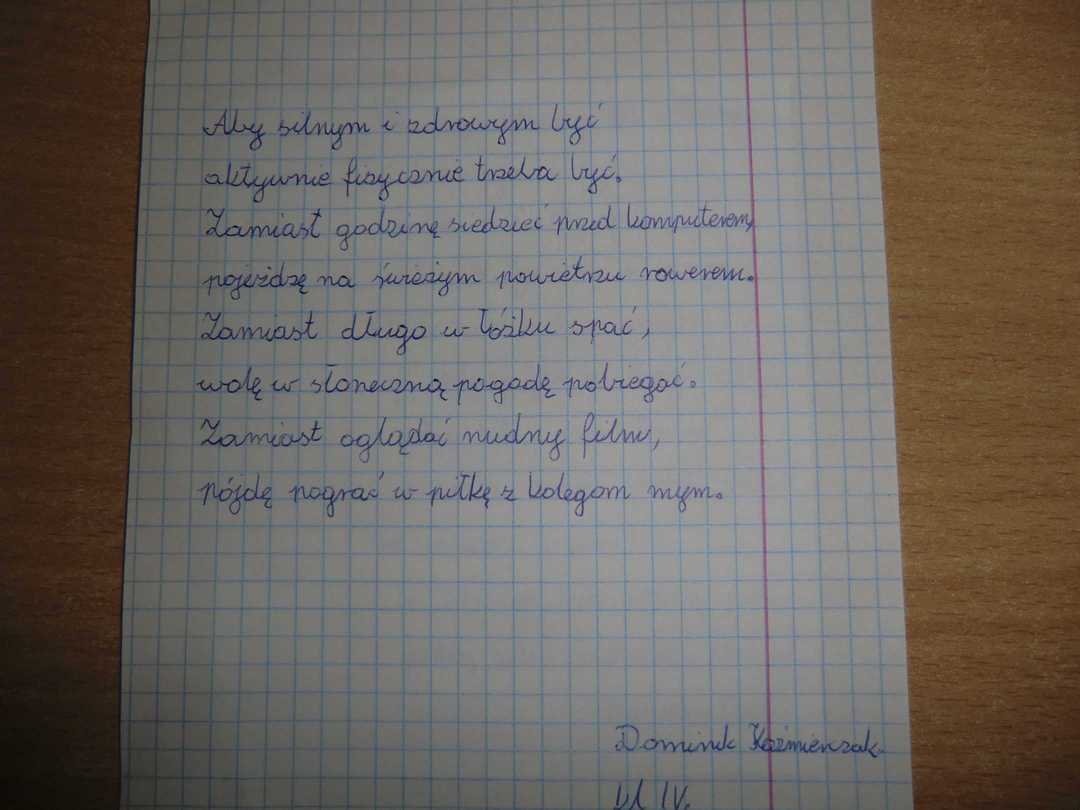 Aby silnym i zdrowym być
aktywnie fizycznie trzeba być.
Zamiast godzinę siedzieć przed komputerem,
pojeżdżę na świeżym powietrzu rowerem.
Zamiast długo w łóżku spać,
wolę w słoneczną pogodę pobiegać.
Zamiast oglądać nudny film,
pójdę pograć w piłkę z kolegom mym.
Dominik Kaźmierczak
kl IV.